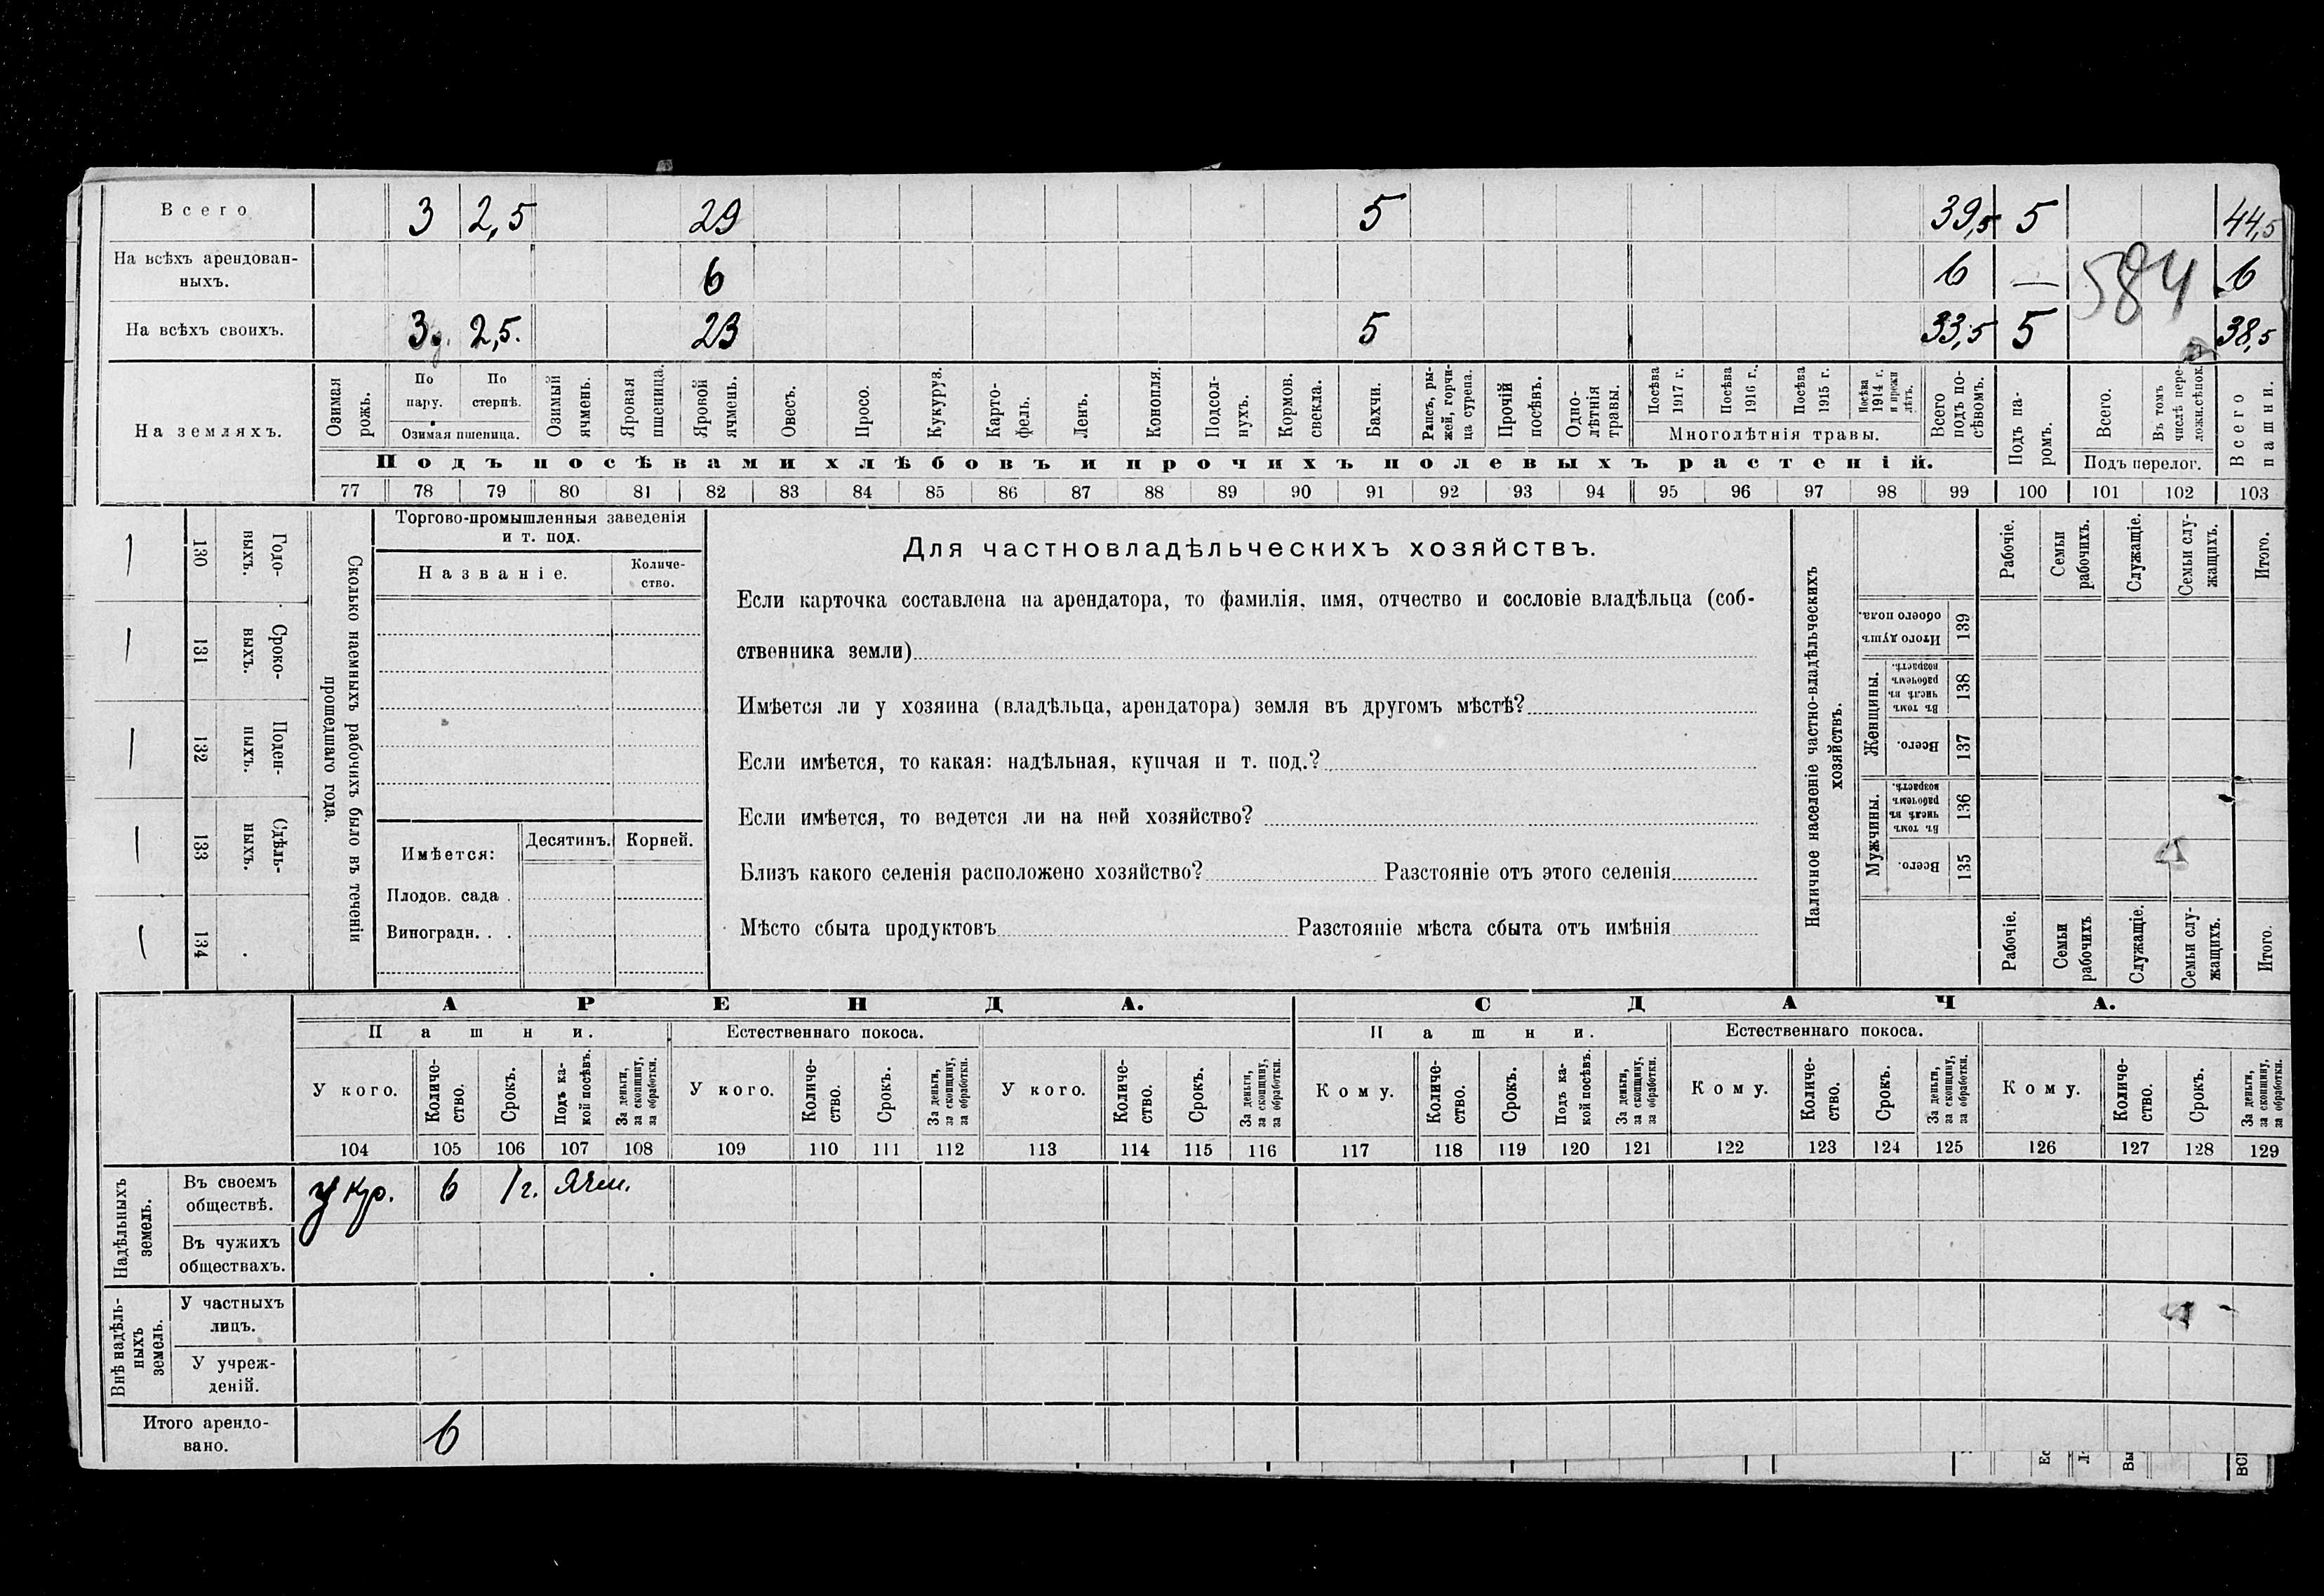 Всего 3 2,5 29 5 39,5 5 44,5
На всѣхъ арендован-
ныхъ. 6 6 — 584 6
На всѣхъ своихъ. 3 2,5. 23 5 33,5 5 38,5
На земляхъ.
Озимая рожь.
По пару.
По стернѣ.
Озимая пшеница.
Озимый ячмень.
Яровая пшеница.
Яровой ячмень.
Овесъ.
Просо.
Кукуруз.
Карто-
фель.
Ленъ.
Конопля.
Подсол-
нухъ.
Кормов. свекла.
Бахчи.
Рапсъ, ры-
жей, горчи-
ца сурепа.
Прочій посѣвъ.
Одно-
лѣтнія травы.
Посѣва 1917 г.
Посѣва 1916 г.
Посѣва 1915 г.
Посѣва 1914 г. и прежн лѣтъ.
Многолѣтнія травы.
Всего подъ по-
сѣвомъ.
Подъ па-
ромъ.
Всего.
Въ томъ числѣ пере-
лежн.сѣнок.
Подъ перелог.
Всего пашни.
Подъ посѣвами хлѣбовъ и прочихъ полевыхъ растеній.
77 78 79 80 81 82 83 84 85 86 87 88 89 90 91 92 93 94 95 96 97 98 99 100 101 102 103
Сколько наемныхъ рабочихъ было въ теченіи
прошедшаго года.
Годо-
выхъ.
130 —
Сроко-
выхъ.
131 —
Поден-
ныхъ.
132 —
Сдѣль-
ныхъ.
133 —
134 —
Торгово-промышленныя заведенія
и т. под.
Названіе.
Количе-
ство.
Имѣется:
Десятинъ. Корней.
Плодов. сада .
Виноградн. . .
Для частновладѣльческихъ хозяйствъ.
Если карточка составлена на арендатора, то фамилія, имя, отчество и сословіе владѣльца (соб-
ственника земли)
Имѣется ли у хозяина (владѣльца, арендатора) земля въ другомъ мѣстѣ?
Если имѣется, то какая: надѣльная, купчая и т. под.?
Если имѣется, то ведется ли на ней хозяйство?
Близъ какого селенія расположено хозяйство? Разстояніе отъ этого селенія
Мѣсто сбыта продуктовъ Разстояніе мѣста сбыта отъ имѣнія
Наличное населеніе частно-владѣльческихъ
хозяйствъ.
Рабочіе.
Семьи рабочихъ.
Служащіе.
Семьи слу-
жащихъ.
Итого.
Итого душъ обоего пола. 139
Женщины.
Въ томъ числѣ въ рабочемъ возрастѣ. 138
Всего. 137
Мужчины.
Въ томъ числѣ въ рабочемъ возрастѣ. 136
Всего. 135
Рабочіе.
Семьи рабочихъ
Служащіе.
Семьи слу-
жащихъ.
Итого.
АРЕНДА. СДАЧА.
Пашни. Естественнаго покоса. Пашни. Естественнаго покоса.
У кого.
Количе-
ство.
Срокъ.
Подъ ка-
кой посѣвъ.
За деньги, за скопщину, за обработки.
У кого.
Количе-
ство.
Срокъ.
За деньги, за скопщину, за обработки.
У кого.
Количе-
ство.
Срокъ.
За деньги, за скопщину, за обработки.
Кому.
Количе-
ство.
Срокъ.
Подъ ка-
кой посѣвъ.
За деньги, за скопщину, за обработки.
Кому.
Количе-
ство.
Срокъ.
За деньги, за скопщину, за обработки.
Кому.
Количе-
ство.
Срокъ.
За деньги, за скопщину, за обработки.
104 105 106 107 108 109 110 111 112 113 114 115 116 117 118 119 120 121 122 123 124 125 126 127 128 129
Надѣльныхъ земель.
Въ своемъ
обществѣ. у кр. 6 1г. Ячм.
Въ чужихъ
обществахъ.
Внѣ надѣль-
ныхъ земель.
У частныхъ
лицъ.
У учреж-
деній.
Итого арендо-
вано. 6